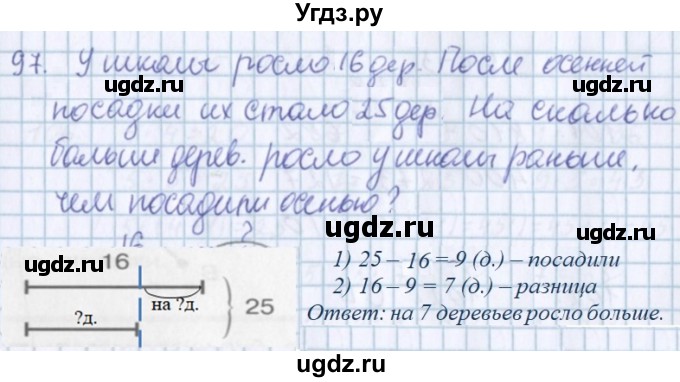 Угдз.ру
97. У школы росло 16 дер. После осенней
посадки их стало 25 дер. На сколько
больше дерев. росло у школы раньше,
чем посадили осенью?
ugdz.ru ugdz.ru
ugdz.ru ugdz.ru
ugdz.ru ugdz.ru
16 ?
16
на ?д.
?д.
25
1) 25 – 16 = 9 (д.) – посадили
2) 16 – 9 = 7 (д.) – разница
Ответ: на 7 деревьев росло больше.
ugdz.ru